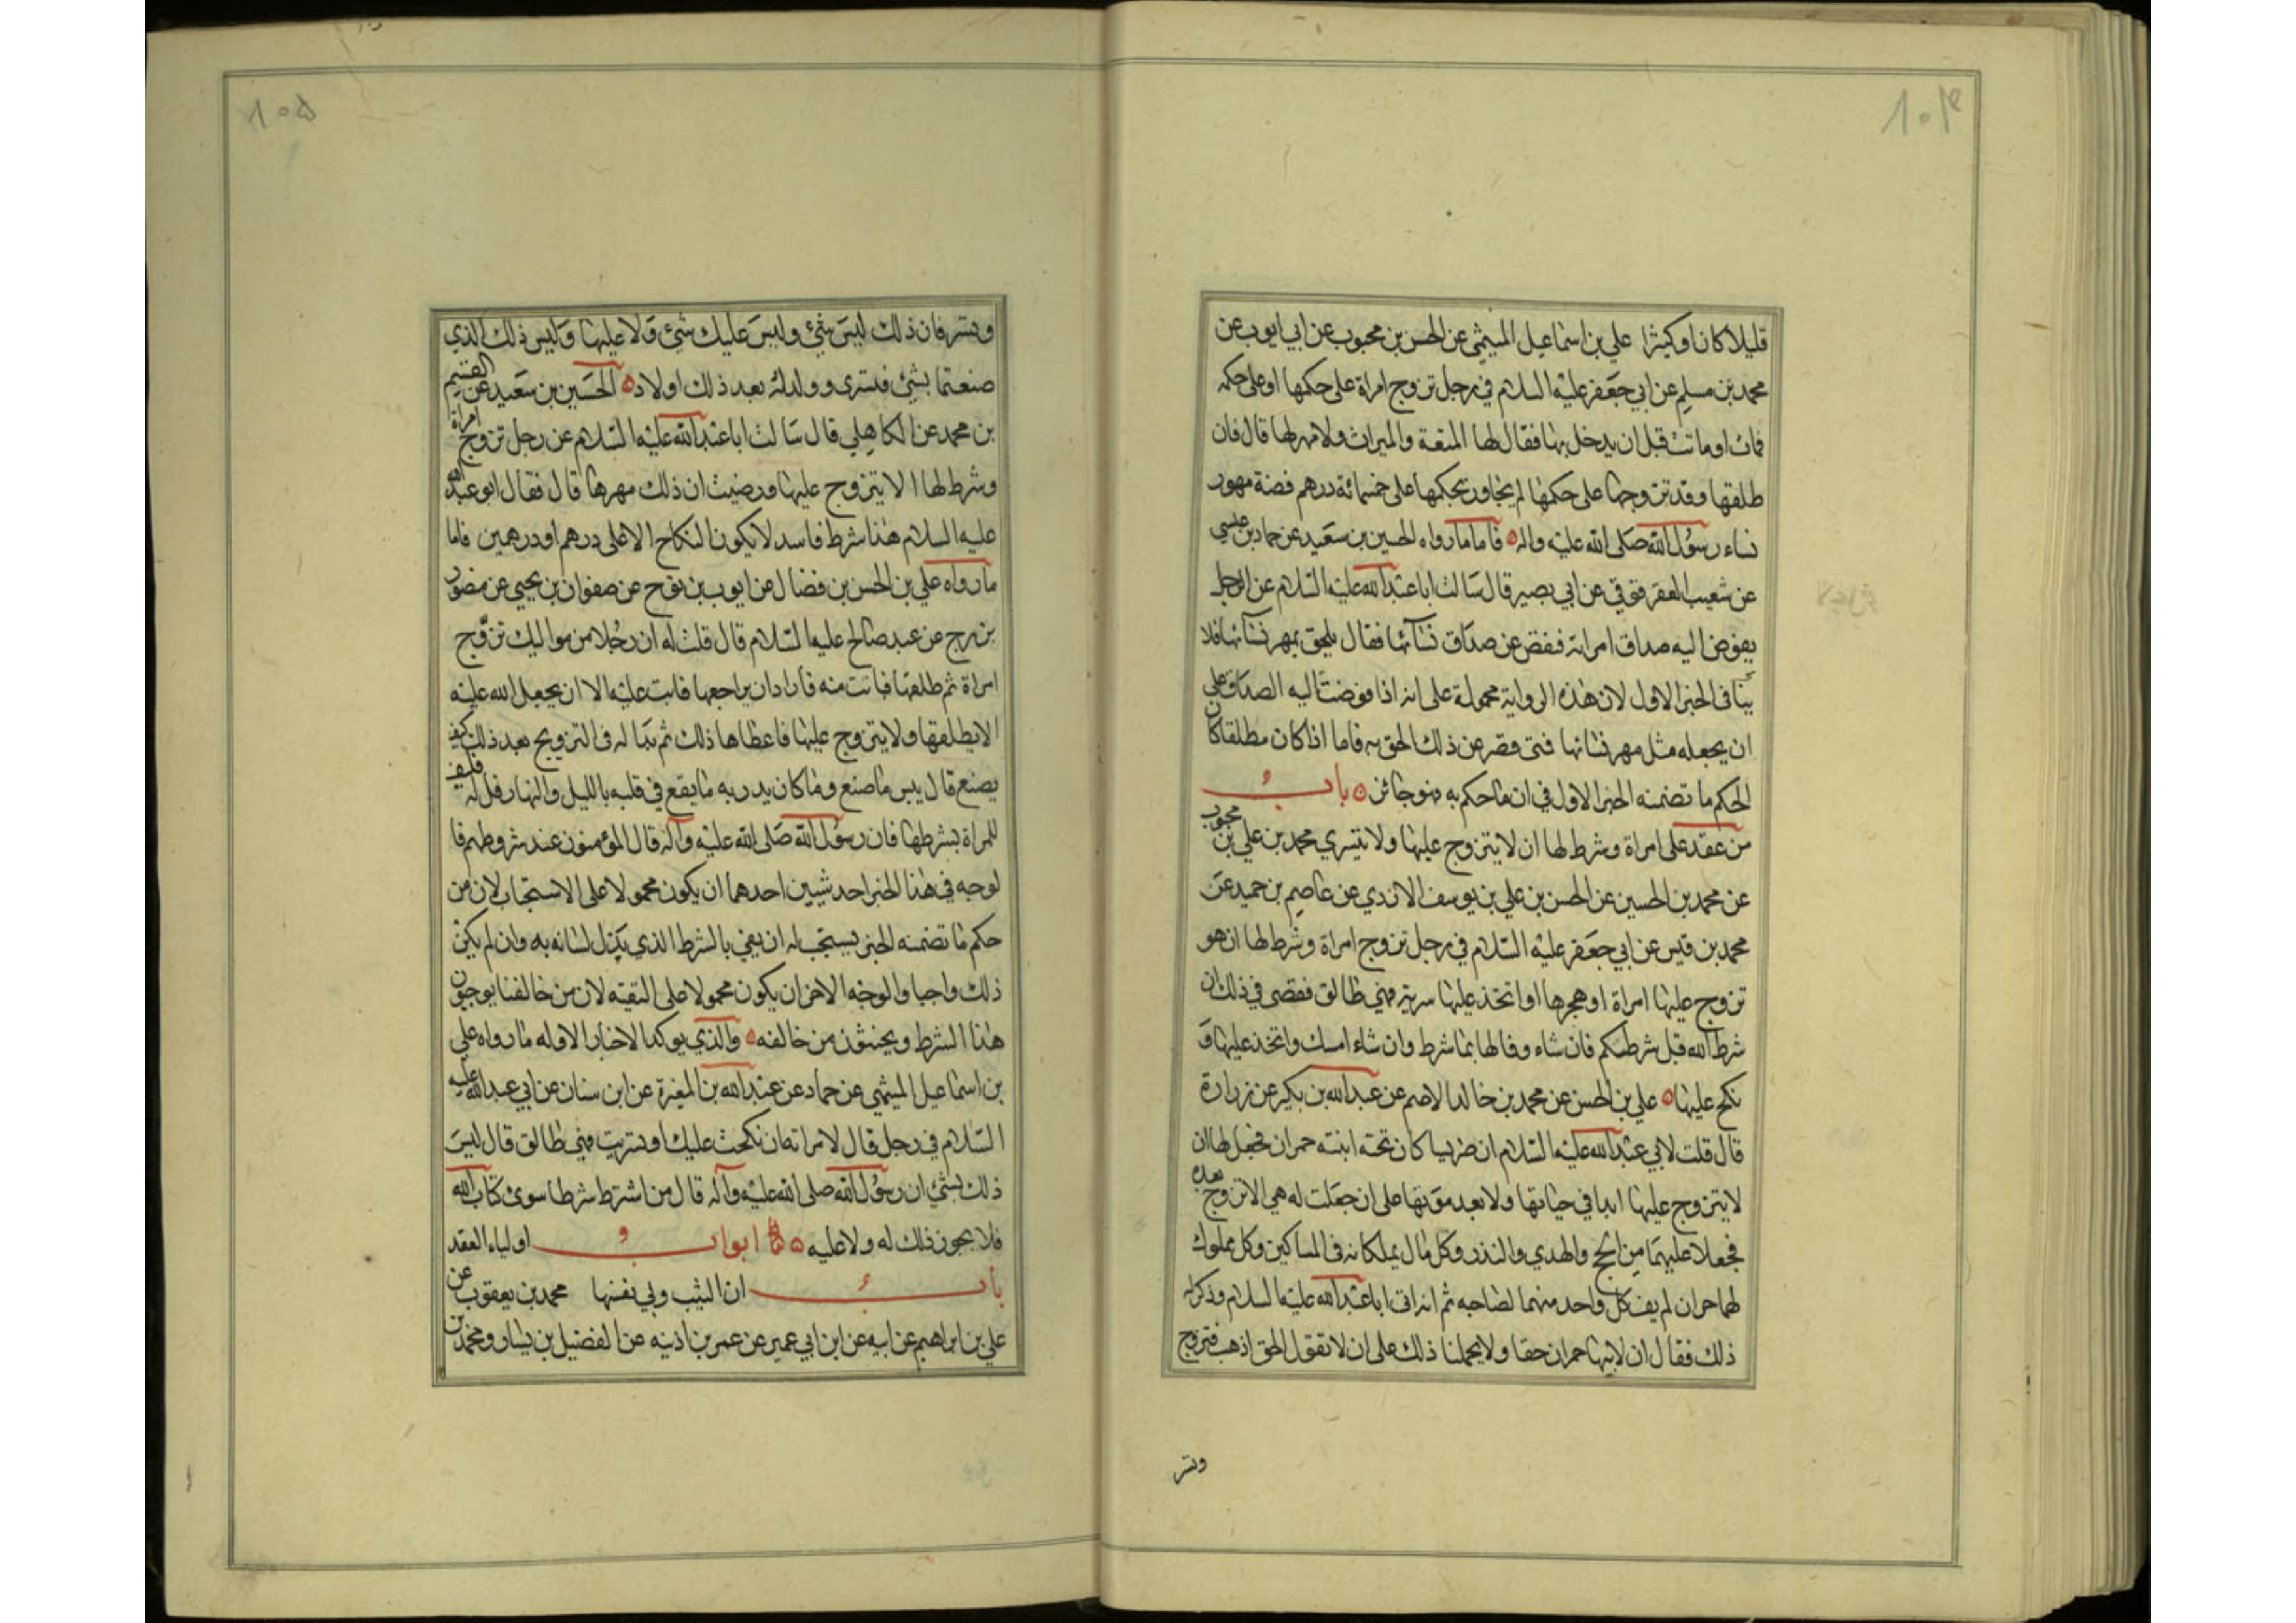 ٨٠٤
قليلا كان او كثيرا علي بن اسماعيل الميثمي عن الحسن بن محبوب عن ابي ايوب عن
محمد بن مسلم عن ابي جعفر عليه السلام في رجل تزوج امراة على حكمها او على حكمه
فمات او ماتت قبل ان يدخل بها فقال لها المتعة والميراث ولا مهر لها قال فان
طلقها وقد تزوجها على حكمها لم يتجاوز بحكمها على خمسمائة درهم فضة مهور
نساء رسول الله صلى الله عليه واله فاما ما رواه الحسين بن سعيد عن حماد بن عيسى
عن شعيب العقرقوقي عن ابي بصير قال سالت ابا عبد الله عليه السلام عن الرجل
يفوض اليه صداق امراته فنقص عن صداق نسآئها فقال يلحق بمهر نسآئها فلا
ينافى الخبر الاول لان هذه الرواية محمولة على انه اذا فوضت اليه الصداق على
ان يجعله مثل مهر نسائها فمتى قصر عن ذلك الحق به فاما اذا كان مطلقا كان
الحكم ما تضمنه الخبر الاول في ان ما حكم به فهو جائز باب
من عقد على امراة وشرط لها ان لا يتزوج عليها ولا يتسري محمد بن علي بن محبوب
عن محمد بن الحسين عن الحسن بن علي بن يوسف الازدي عن عاصم بن حميد عن
محمد بن قيس عن ابي جعفر عليه السلام في رجل تزوج امراة وشرط لها ان هو
تزوج عليها امراة او هجرها او اتخذ عليها سرية فهي طالق فقضى في ذلك ان
شرط الله قبل شرطكم فان شاء وفا لها بما شرط وان شاء امسك واتخذ عليها و
نكح عليها علي بن الحسن عن محمد بن خالد الاصم عن عبد الله بن بكير عن زرارة
قال قلت لابي عبد الله عليه السلام ان ضريسا كان تحته ابنته حمران فجعل لها ان
لا يتزوج عليها ابدا في حياتها ولا بعد موتها على ان جعلت له هي الا تزوج بعده
فجعلا عليهما من الحج والهدي والنذر وكل مال يملكانه فى المساكين وكل مملوك
لهما حر ان لم يف كل واحد منهما لصاحبه ثم انه اتى ابا عبد الله عليه السلام وذكر له
ذلك فقال ان لابيها حمران حقا ولا يحملنا ذلك على ان لا تقول الحق اذهب فتزوج
وتسر
٨٠٥
وتسر فان ذلك ليس شئ وليس عليك شئ ولا عليها وليس ذلك الذي
صنعتما بشئ فتسرى وولد له بعد ذلك اولاد الحسين بن سعيد عن القسم
بن محمد عن الكاهلي قال سالت ابا عبد الله عليه السلام عن رجل تزوج امراة
وشرط لها الا يتزوج عليها ورضيت ان ذلك مهرها قال فقال ابو عبد الله
عليه السلام هذا شرط فاسد لا يكون النكاح الا على درهم او درهمين فاما
ما رواه علي بن الحسن بن فضال عن ايوب بن نوح عن صفوان بن يحيى عن منصور
بن برج عن عبد صالح عليه السلام قال قلت له ان رجلا من مواليك تزوج
امراة ثم طلقها فبانت منه فاراد ان يراجعها فابت عليه الا ان يجعل الله عليه
الا يطلقها ولا يتزوج عليها فاعطاها ذلك ثم بدا له فى التزويج بعد ذلك كيف
يصنع قال بيس ما صنع وما كان يدريه ما يقع في قلبه بالليل والنهار قل له فليف
للمراة بشرطها فان رسول الله صلى الله عليه وآله قال المؤمنون عند شروطهم فا
لوجه في هذا الخبر احد شيين احدهما ان يكون محمولا على الاستحباب لان من
حكم ما تضمنه الخبر يستحب له ان يفي بالشرط الذي بذل لسانه به وان لم يكن
ذلك واجبا والوجه الاخر ان يكون محمولا على التقيه لان من خالفنا يوجبون
هذا الشرط ويحنثون من خالفه والذي يوكد الاخبار الاوله ما رواه علي
بن اسماعيل الميثمي عن حماد عن عبد الله بن المغيرة عن ابن سنان عن ابي عبد الله عليه
السلام في رجل قال لامراته ان نكحت عليك او تسريت فهي طالق قال ليس
ذلك بشئ ان رسول الله صلى الله عليه وآله قال من اشترط شرطا سوى كتاب الله
فلا يجوز ذلك له ولا عليه ابواب اولياء العقد
باب ان الثيب ولي نفسها محمد بن يعقوب عن
علي بن ابراهيم عن ابيه عن ابن ابي عمير عن عمر بن اذينه عن الفضيل بن يسار ومحمد بن